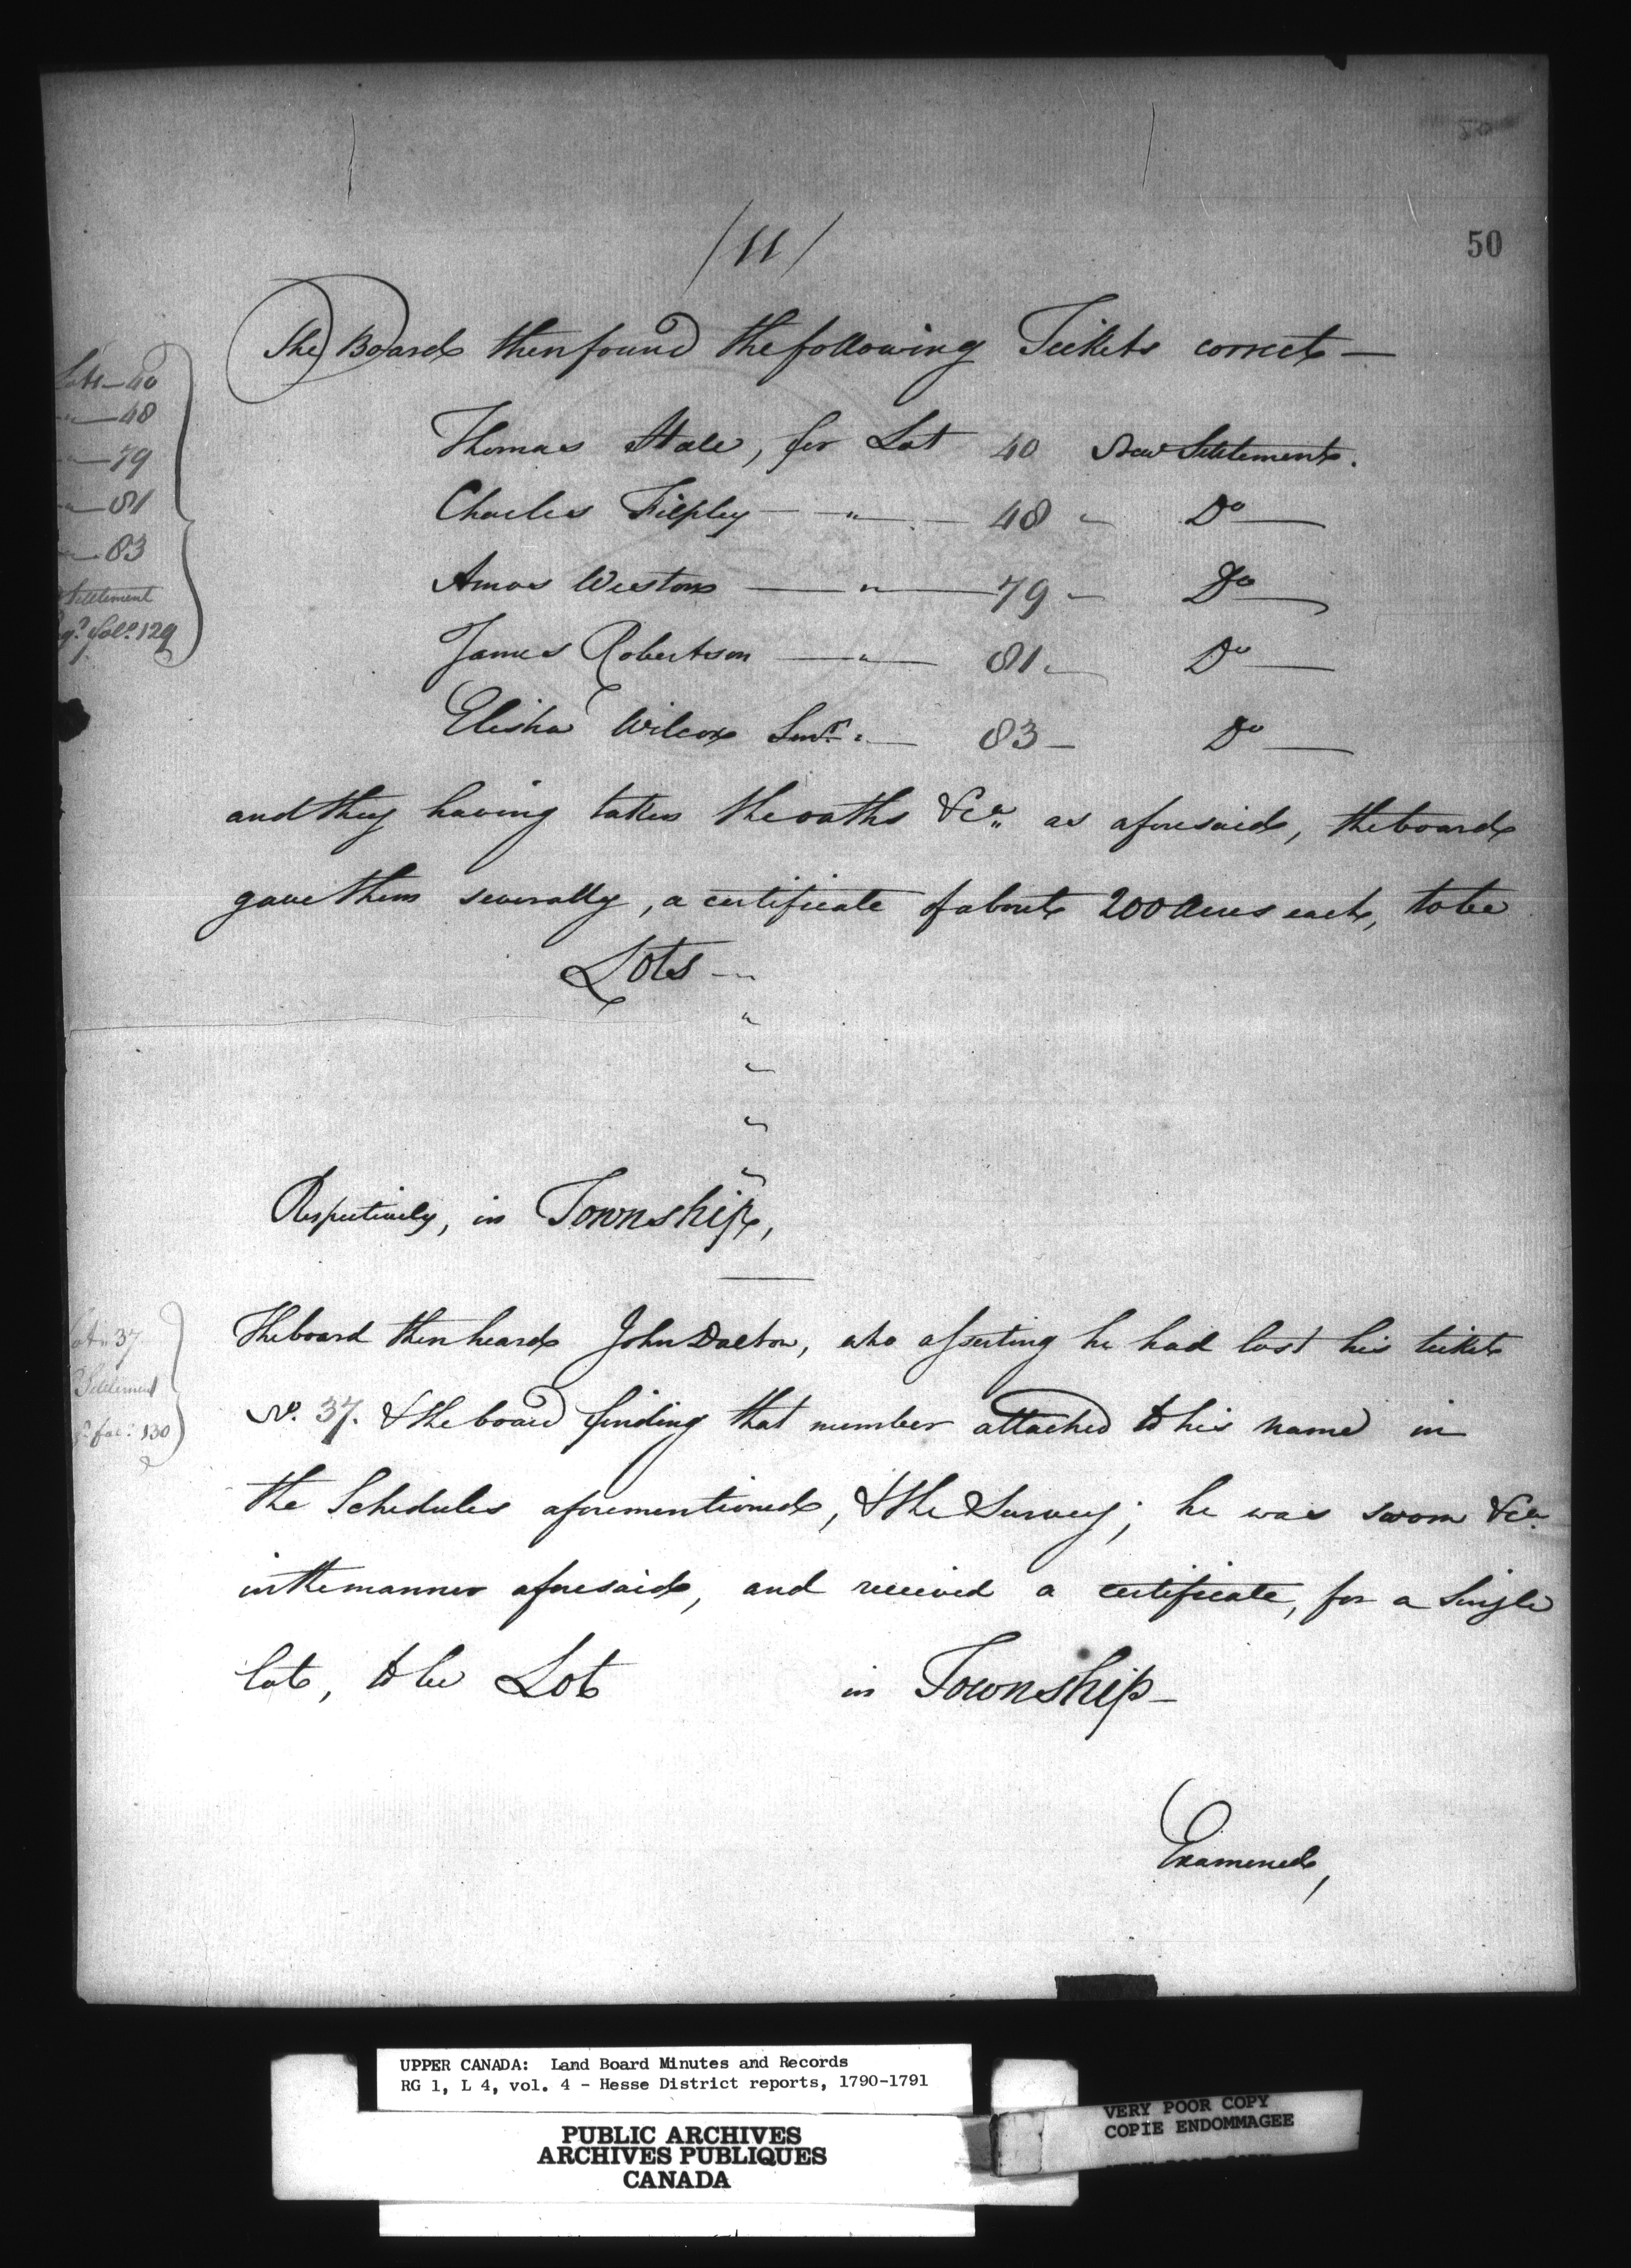 50
/11/
The Board then found the following Tickets correct —
Thomas Hale, for Lot 40 New Settlement.
Charles Fiepley — " — 48 " Do —
Amos Weston — " — 79 — Do —
James Robertson — " — 81 " Do —
Elisha Wilcox Senr. " — 83 — Do —
and they having taken the oaths &ca. as aforesaid, the board
gave them severally, a certificate of about 200 Acres each, to be
Lots — "
"
"
"
"
Respectively, in Township,
The board then heard John Dalton, who asserting he had lost his ticket
No. 37. & the board finding that number attached to his name in
the Schedules aforementioned, & the Survey; he was sworn &ca.
in the manner aforesaid, and received a certificate, for a Single
lot, to be Lot in Township —
Examined,
Lots — 40
" — 48
" — 79
" — 81
" — 83
Settlement
fol. 129
37
Settlement
fol. 130
UPPER CANADA: Land Board Minutes and Records
RG 1, L 4, vol. 4 - Hesse District reports, 1790-1791
PUBLIC ARCHIVES
ARCHIVES PUBLIQUES
CANADA
VERY POOR COPY
COPIE ENDOMMAGEE